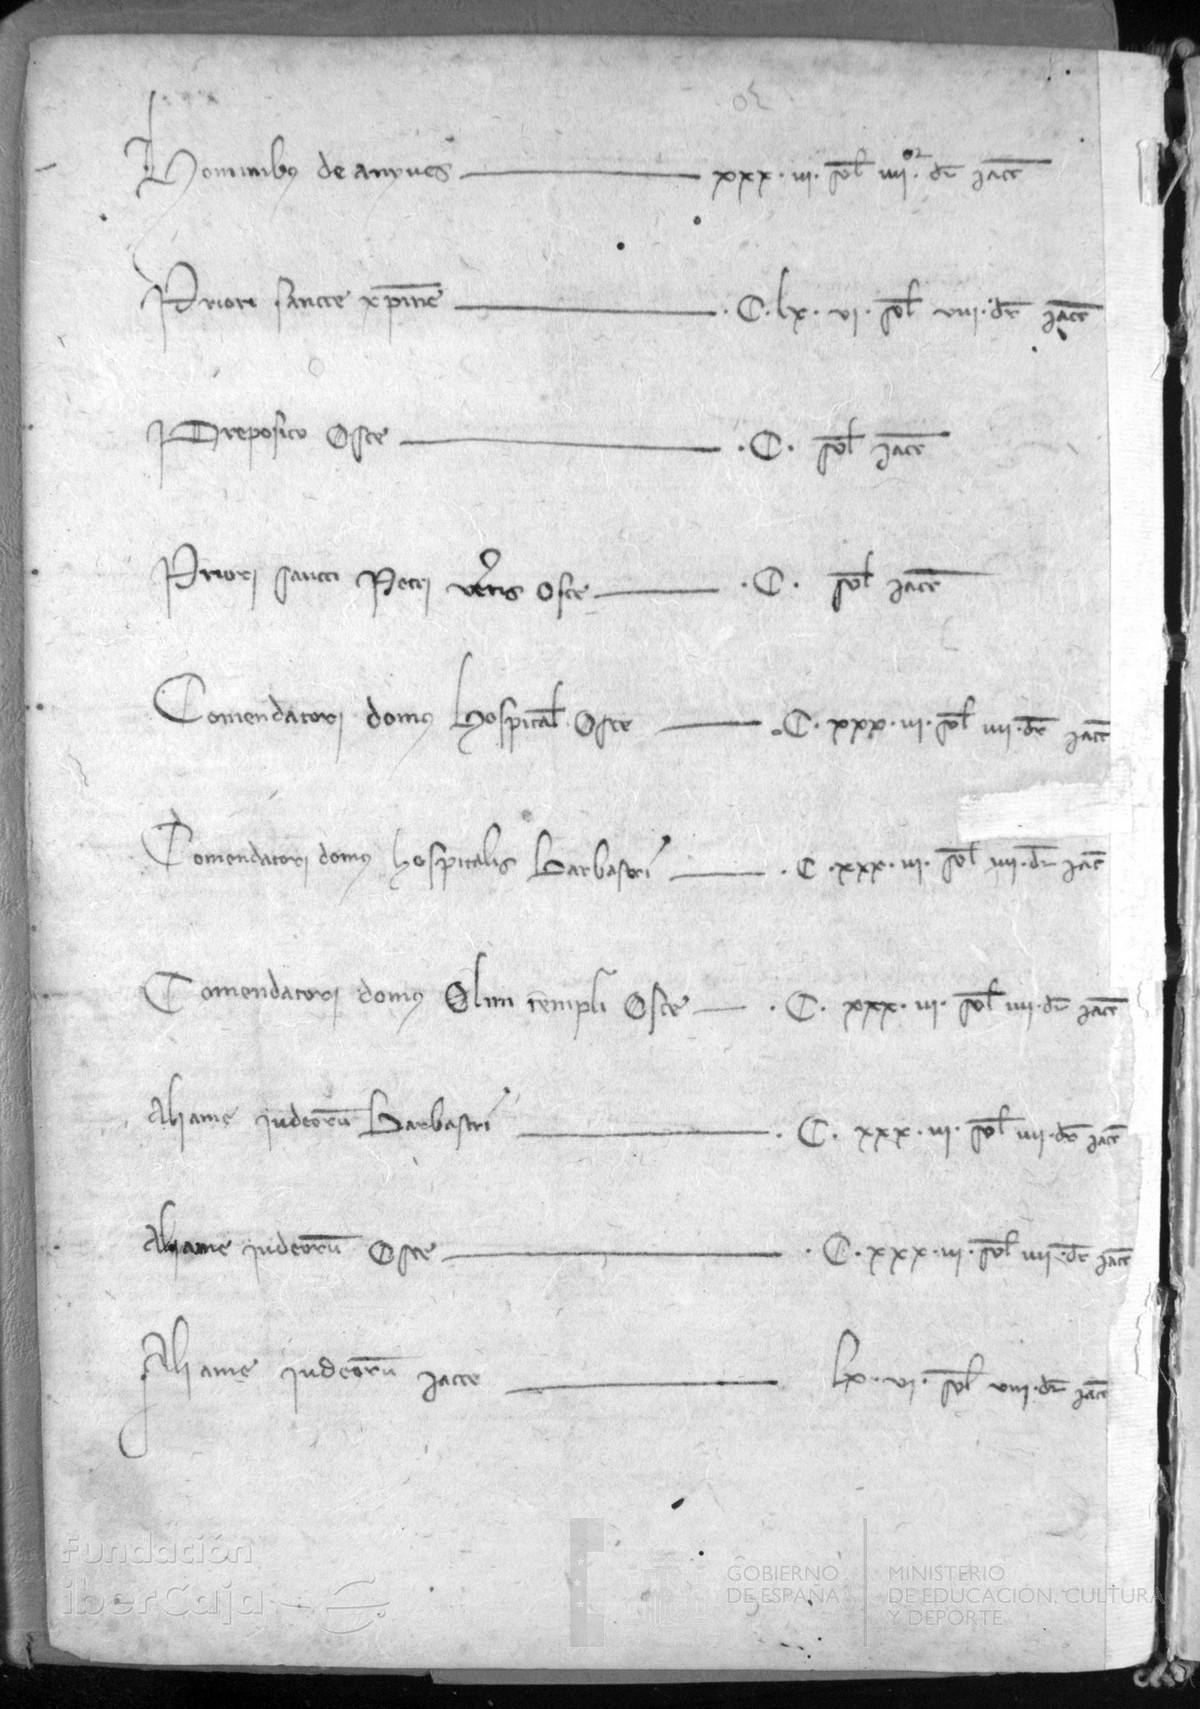 Hominibꝰ de anyues ——— xxx · iii · sol̄ iiii·or dr̄ iacc̄
Priori sancte xp̄ine ——— · C · lx · vi · sol̄ viii · dr̄ iacc̄
Preposito Osce ——— · C · sol̄ iacc̄
Priori sancti Petri vet̄is Osce ——— · C · sol̄ iacc̄
Comendatori domꝰ hospital̄ Osce ——— · C · xxx · iii · sol̄ iiii · dr̄ iacc̄
Comendatori domꝰ hospitalis Barbastri ——— · C · xxx · iii · sol̄ iiii · dr̄ iacc̄
Comendatori domꝰ Olim templi Osce ——— · C · xxx · iii · sol̄ iiii · dr̄ iacc̄
Aliame iudeorū Barbastri ——— · C · xxx · iii · sol̄ iiii · dr̄ iacc̄
Aliame iudeorū Osce ——— · C · xxx · iii · sol̄ iiii · dr̄ iacc̄
Aliame iudeorū Jacce ——— lx · vi · sol̄ viii · dr̄ iacc̄
Fundación
iberCaja
GOBIERNO
DE ESPAÑA
MINISTERIO
DE EDUCACIÓN, CULTURA
Y DEPORTE